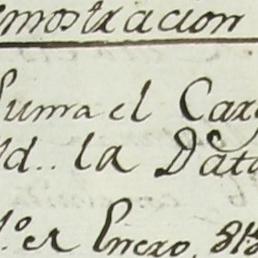 emostracion
Suma el Carg
Yd.. la Data
1.º en Enero, 818